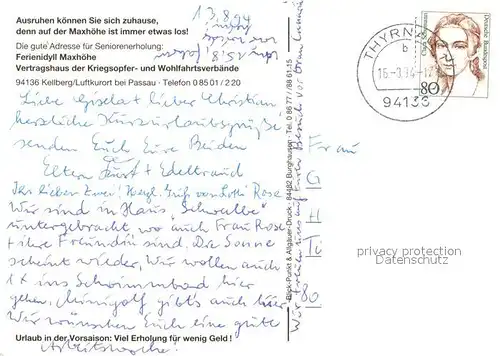 Ausruhen können Sie sich zuhause,
denn auf der Maxhöhe ist immer etwas los!
Die gute Adresse für Seniorenerholung:
Ferienidyll Maxhöhe
Vertragshaus der Kriegsopfer- und Wohlfahrtsverbände
94136 Kellberg/Luftkurort bei Passau · Telefon 0 85 01 / 2 20
13.8.94
Liebe Gisela + lieber Christian
herzliche Kurzurlaubsgrüße
senden Euch Eure Beiden
Eltern + Edeltraud
Ihr lieben Zwei! Herzl. Grüße von Lotti Rose
Wir sind in Haus „Schwalbe"
untergebracht, wo auch Frau Rose
+ ihre Freundin sind. Die Sonne
scheint wieder. Wir wollen auch
1x ins Schwimmbad hier
gehen, Minigolf gibt's auch hier
Wir wünschen Euch eine gute
Arbeitswoche.
Urlaub in der Vorsaison: Viel Erholung für wenig Geld!
Druck · 84482 Burghausen · Tel. 0 86 77 / 88 61-15
THYRNAU
b
16.-8.94-17
94136
Deutsche Bundespost
80
Frau
G
H
Ti
80
privacy protection
Ansichtskarten-Center